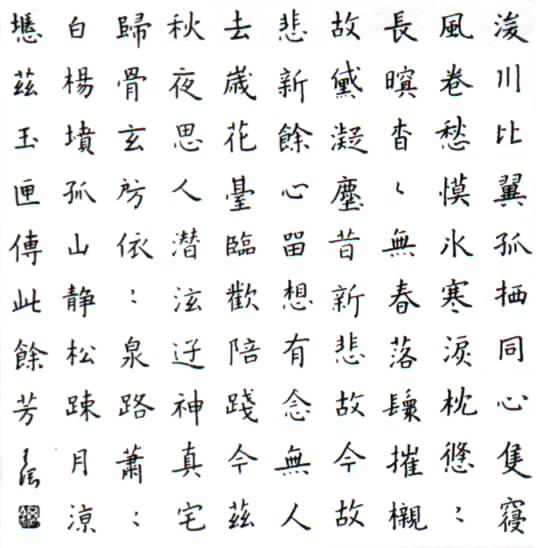 浚川比翼孤栖同心隻寢
風卷愁慔氷寒淚枕悠〻
長暝杳〻無春落摧櫬
故黛凝塵昔新悲故今故
悲新餘心留想有念無人
去歲花臺臨歡陪踐今茲
秋夜思人潜泫迂神真宅
歸骨玄房依〻泉路蕭〻
白楊墳孤山静松踈月凉
茲玉匣傳此餘芳